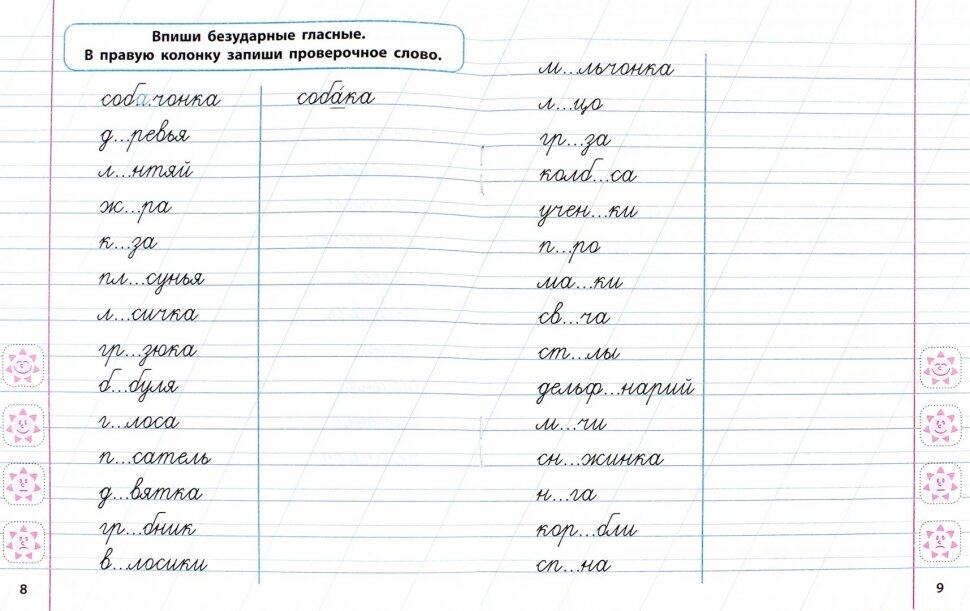 Впиши безударные гласные.
В правую колонку запиши проверочное слово.
собачонка собáка
д...ревья
л...нтяй
ж...ра
к...за
пл...сунья
л...сичка
гр...зюка
б...буля
г...лоса
п...сатель
д...вятка
гр...бник
в...лосики
8
м...льчонка
л...цо
гр...за
колб...са
учен...ки
п...ро
ма...ки
св...ча
ст...лы
дельф...нарий
м...чи
сн...жинка
н...га
кор...бли
сп...на
9